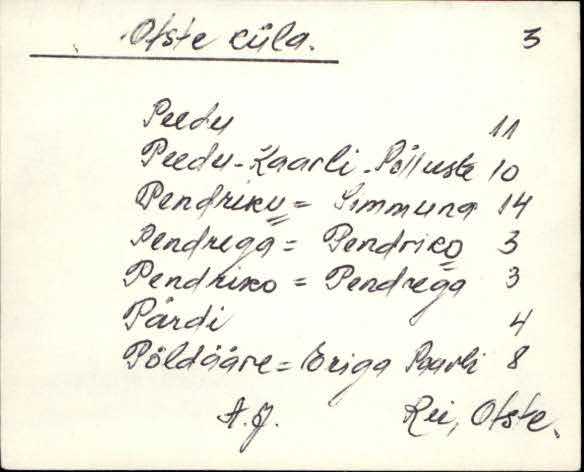 Otste küla. 3
Peedu 11
Peedu-Kaarli-Põlluste 10
Pendriku = Simmuna 14
Pendrega = Pendriko 3
Pendriko = Pendrega 3
Pärdi 4
Põldääre = Eriga Paarli 8
A. J. Rei, Otste.